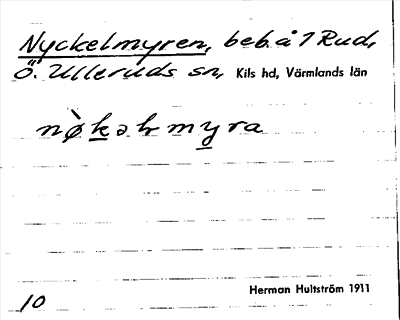 Nyckelmyren, beb. å 1 Rud,
Ö. Ulleruds sn, Kils hd, Värmlands län
Herman Hultström 1911
10